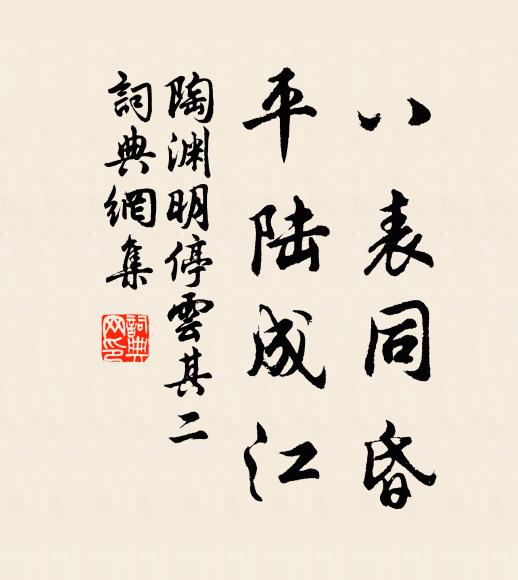 八表同昏
平陆成江
陶渊明停雲其二
詞典網集
詞典网印